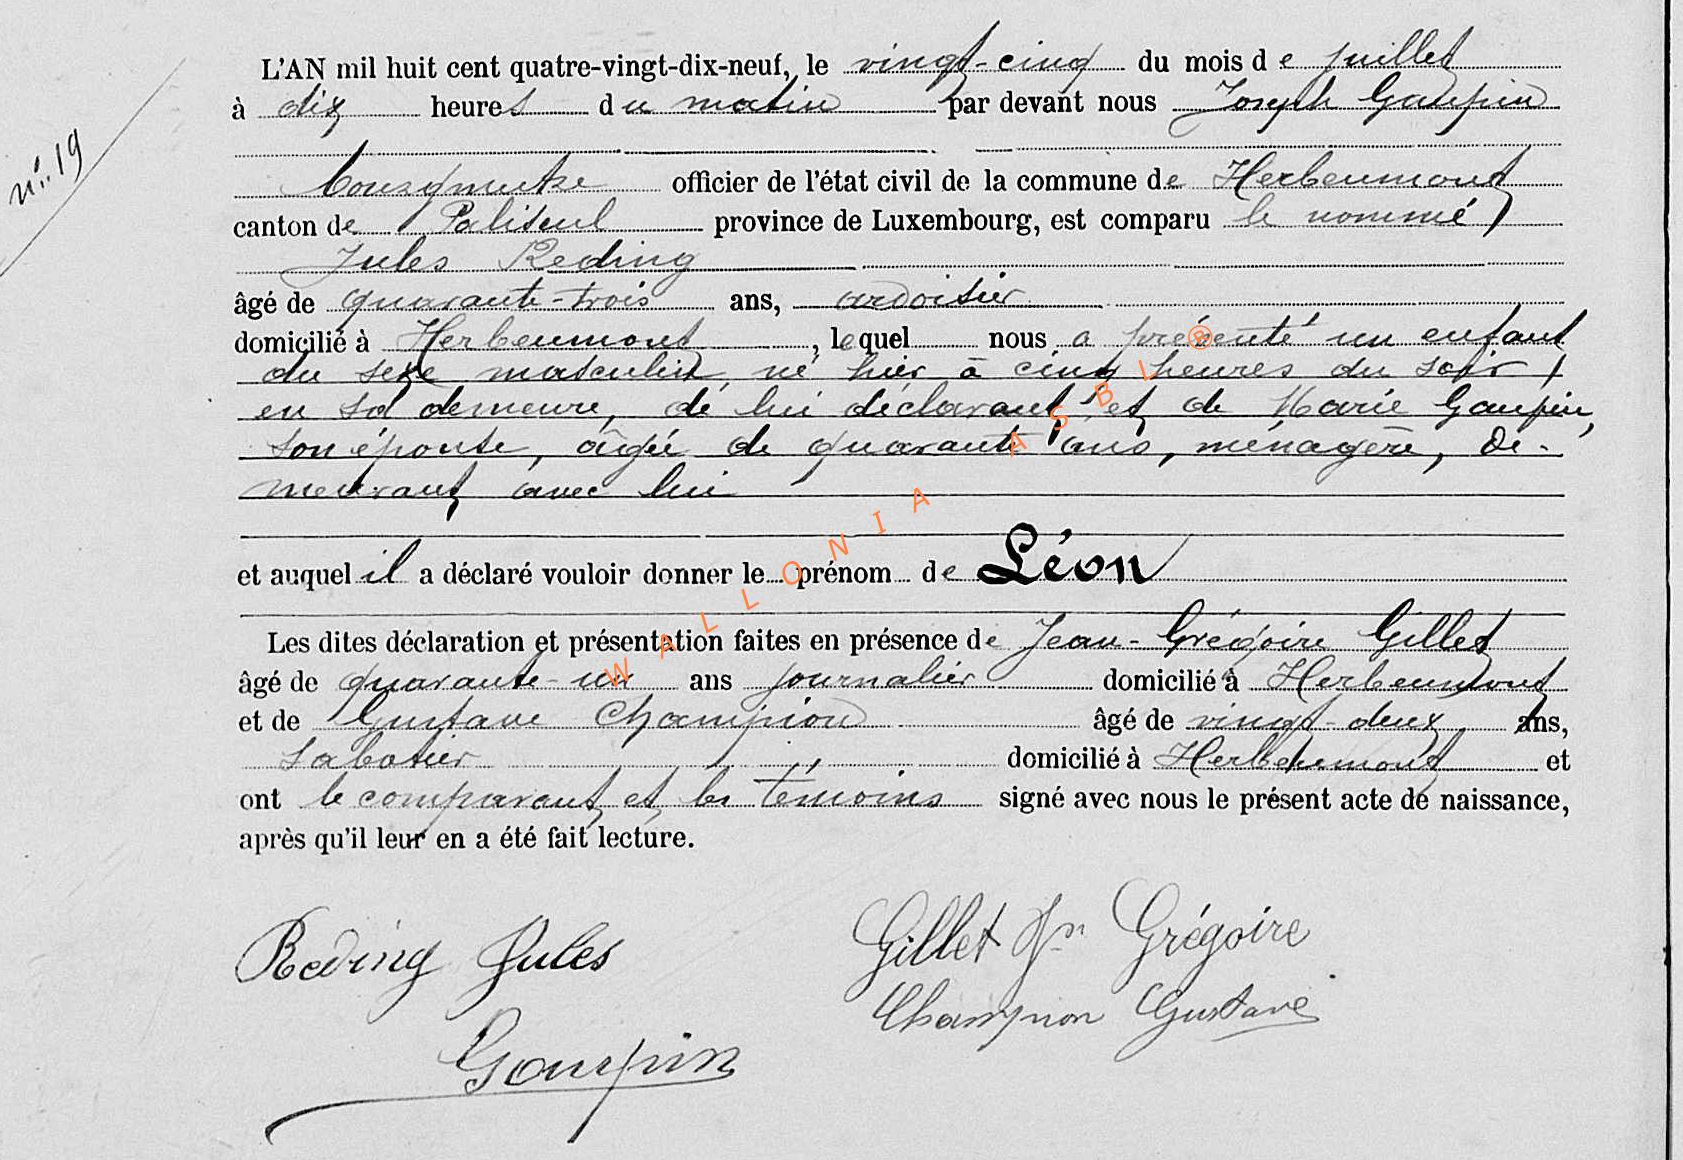 L'AN mil huit cent quatre-vingt-dix-neuf, le vingt-cinq du mois de juillet
à dix heures du matin par devant nous Joseph Gaupin
n°. 19
Bourgmestre officier de l'état civil de la commune de Herbeumont
canton de Paliseul province de Luxembourg, est comparu le nommé
Jules Reding
âgé de quarante-trois ans, ardoisier
domicilié à Herbeumont, lequel nous a présenté un enfant
du sexe masculin, né hier à cinq heures du soir
en sa demeure, de lui déclarant et de Marie Gaupin,
son épouse, âgée de quarante ans, ménagère, de-
meurant avec lui
et auquel il a déclaré vouloir donner le prénom de Léon
Les dites déclaration et présentation faites en présence de Jean-Grégoire Gillet
âgé de quarante-un ans journalier domicilié à Herbeumont
et de Gustave Champion âgé de vingt-deux ans,
sabotier domicilié à Herbeumont et
ont le comparant et les témoins signé avec nous le présent acte de naissance,
après qu'il leur en a été fait lecture.
Reding Jules
Gillet Jn Grégoire
Champion Gustave
Gaupin
WALLONIA ASBL ®